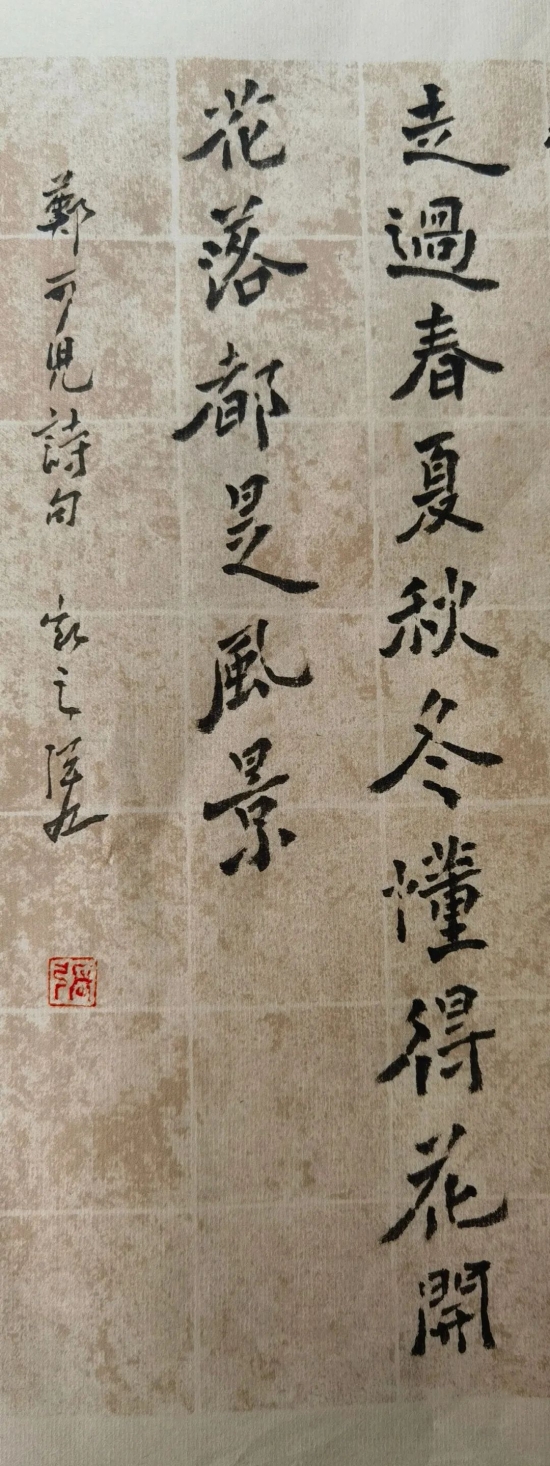 走過春夏秋冬懂得花開
花落都是風景
鄭可兒詩句
張